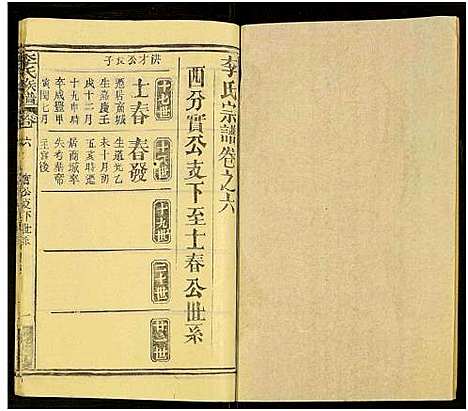 李氏宗譜卷之六
西分實公支下至士春公世系
十七世
十八世
十九世
二十世
廿一世
洪才公長子
士春
遷居商城
生嘉慶壬
戌十二月
十九申時
李咸豐甲
寅閏七月
春發
生道光乙
未十月初
五亥時遷
居商城卒
失考葬帝
王宫後
李氏族譜
卷六
實公支下世系
一